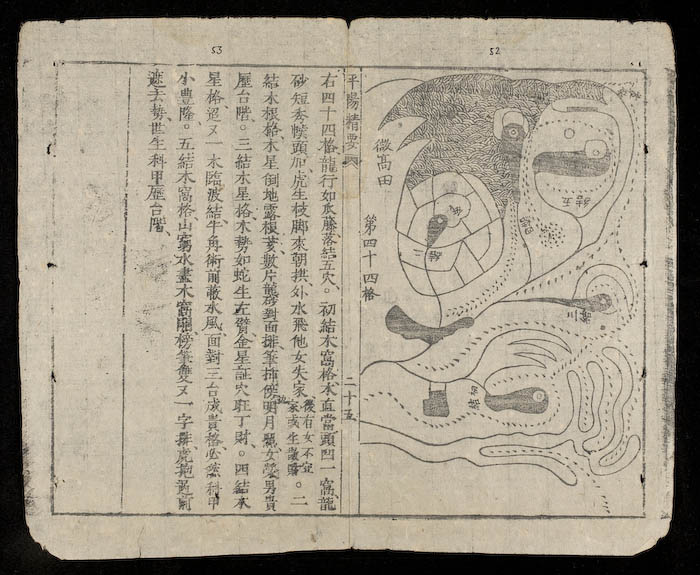 53
52
平陽精要
二十五
第四十四格
微高田
初結
二結
三結
四結
五結
右四十四格龍行如瓜藤落結五穴。初結木窩格木直當頭凹一窩龍
砂短秀幞頭加虎生枝脚來朝拱外水飛他女失家。二
結木根格木星倒地露根數片龍砂對面排筆插傍明月照女瑩男貴
歷台階。三結木星格木勢如蛇生左臂金星証穴旺丁財。四結木
星格又一木臨波結牛角術前蔽水風面對三台成貴格必然科甲
小豊隆。五結木窩格山窩水畫木窩剛榜筆雙又一字排虎抱過前
遮去勢世生科甲歷台階